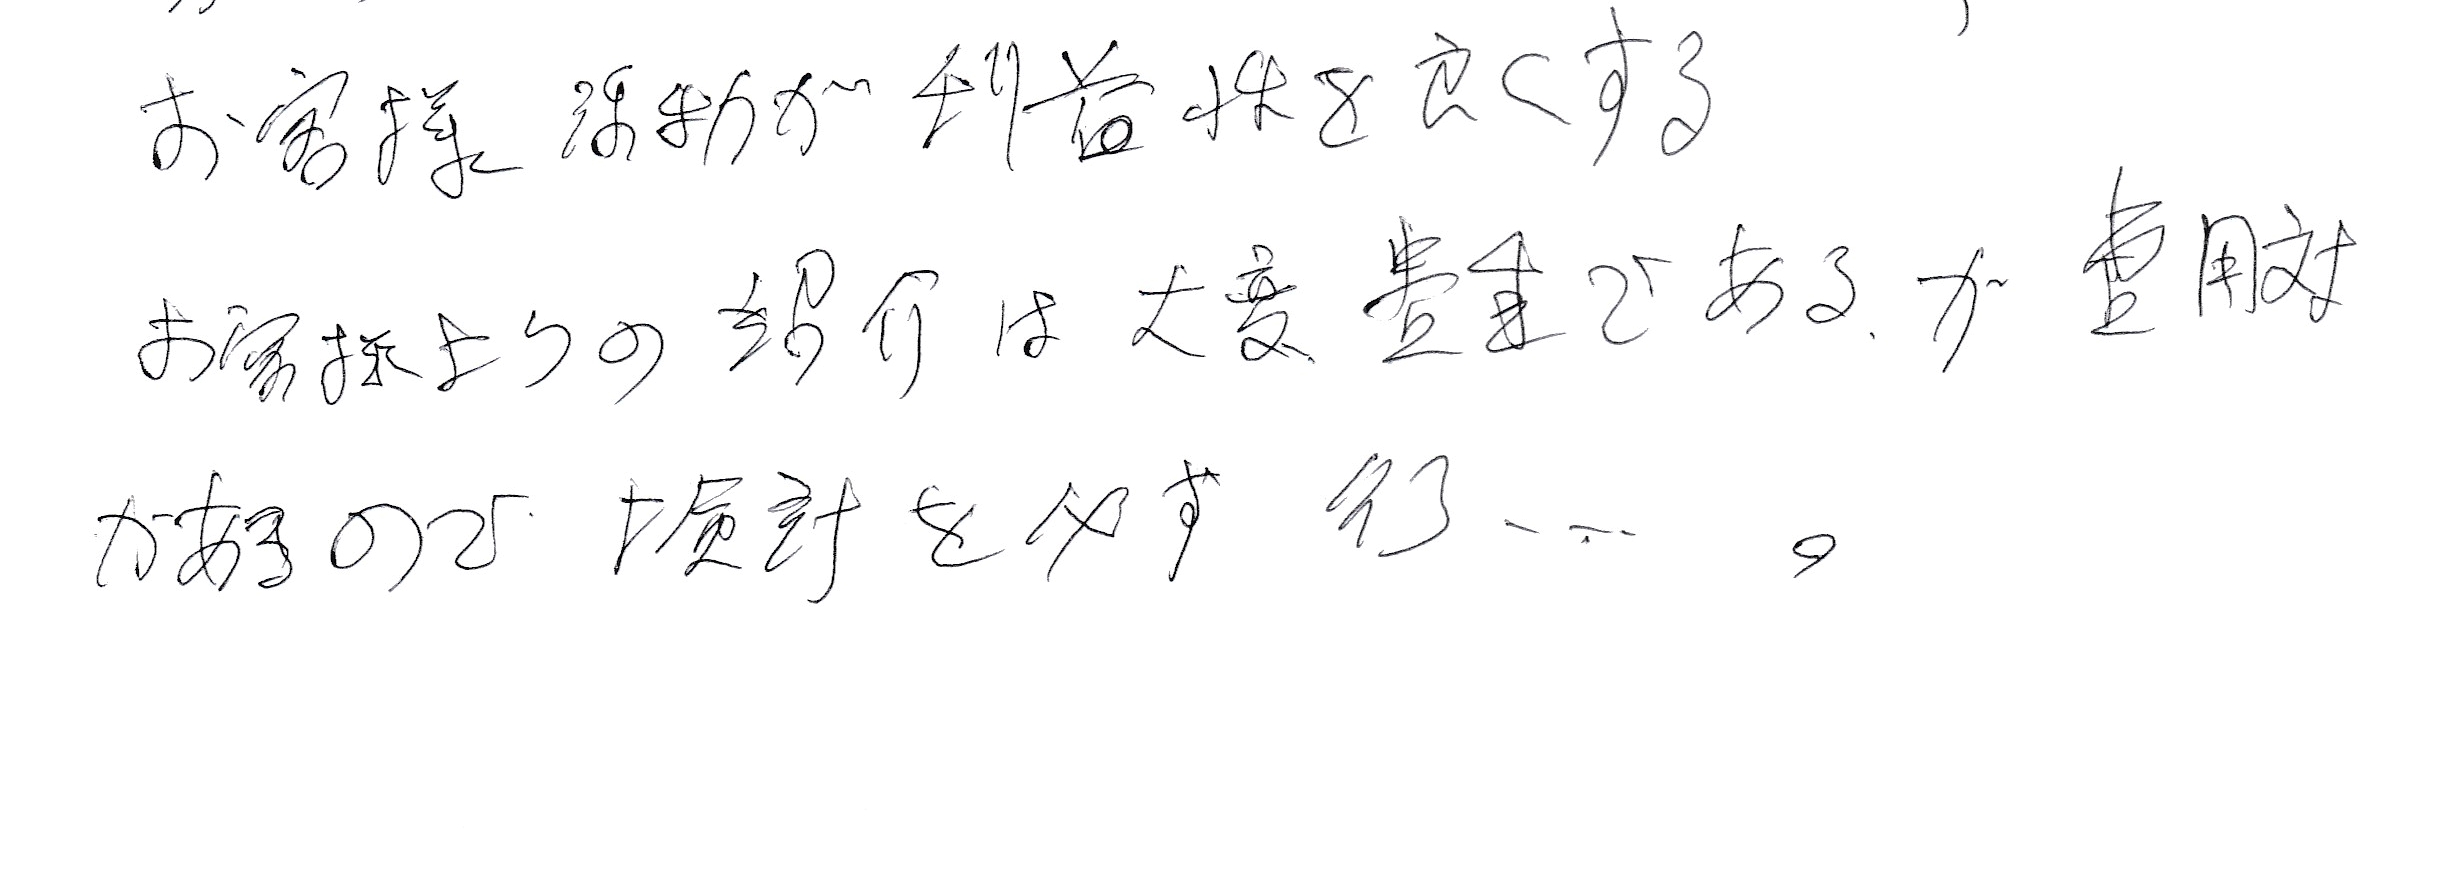 お客様 活動が利益性を良くする
お客様よりの紹介は大変貴重であるが 費用対
があるので 検討を必ず 行う……。